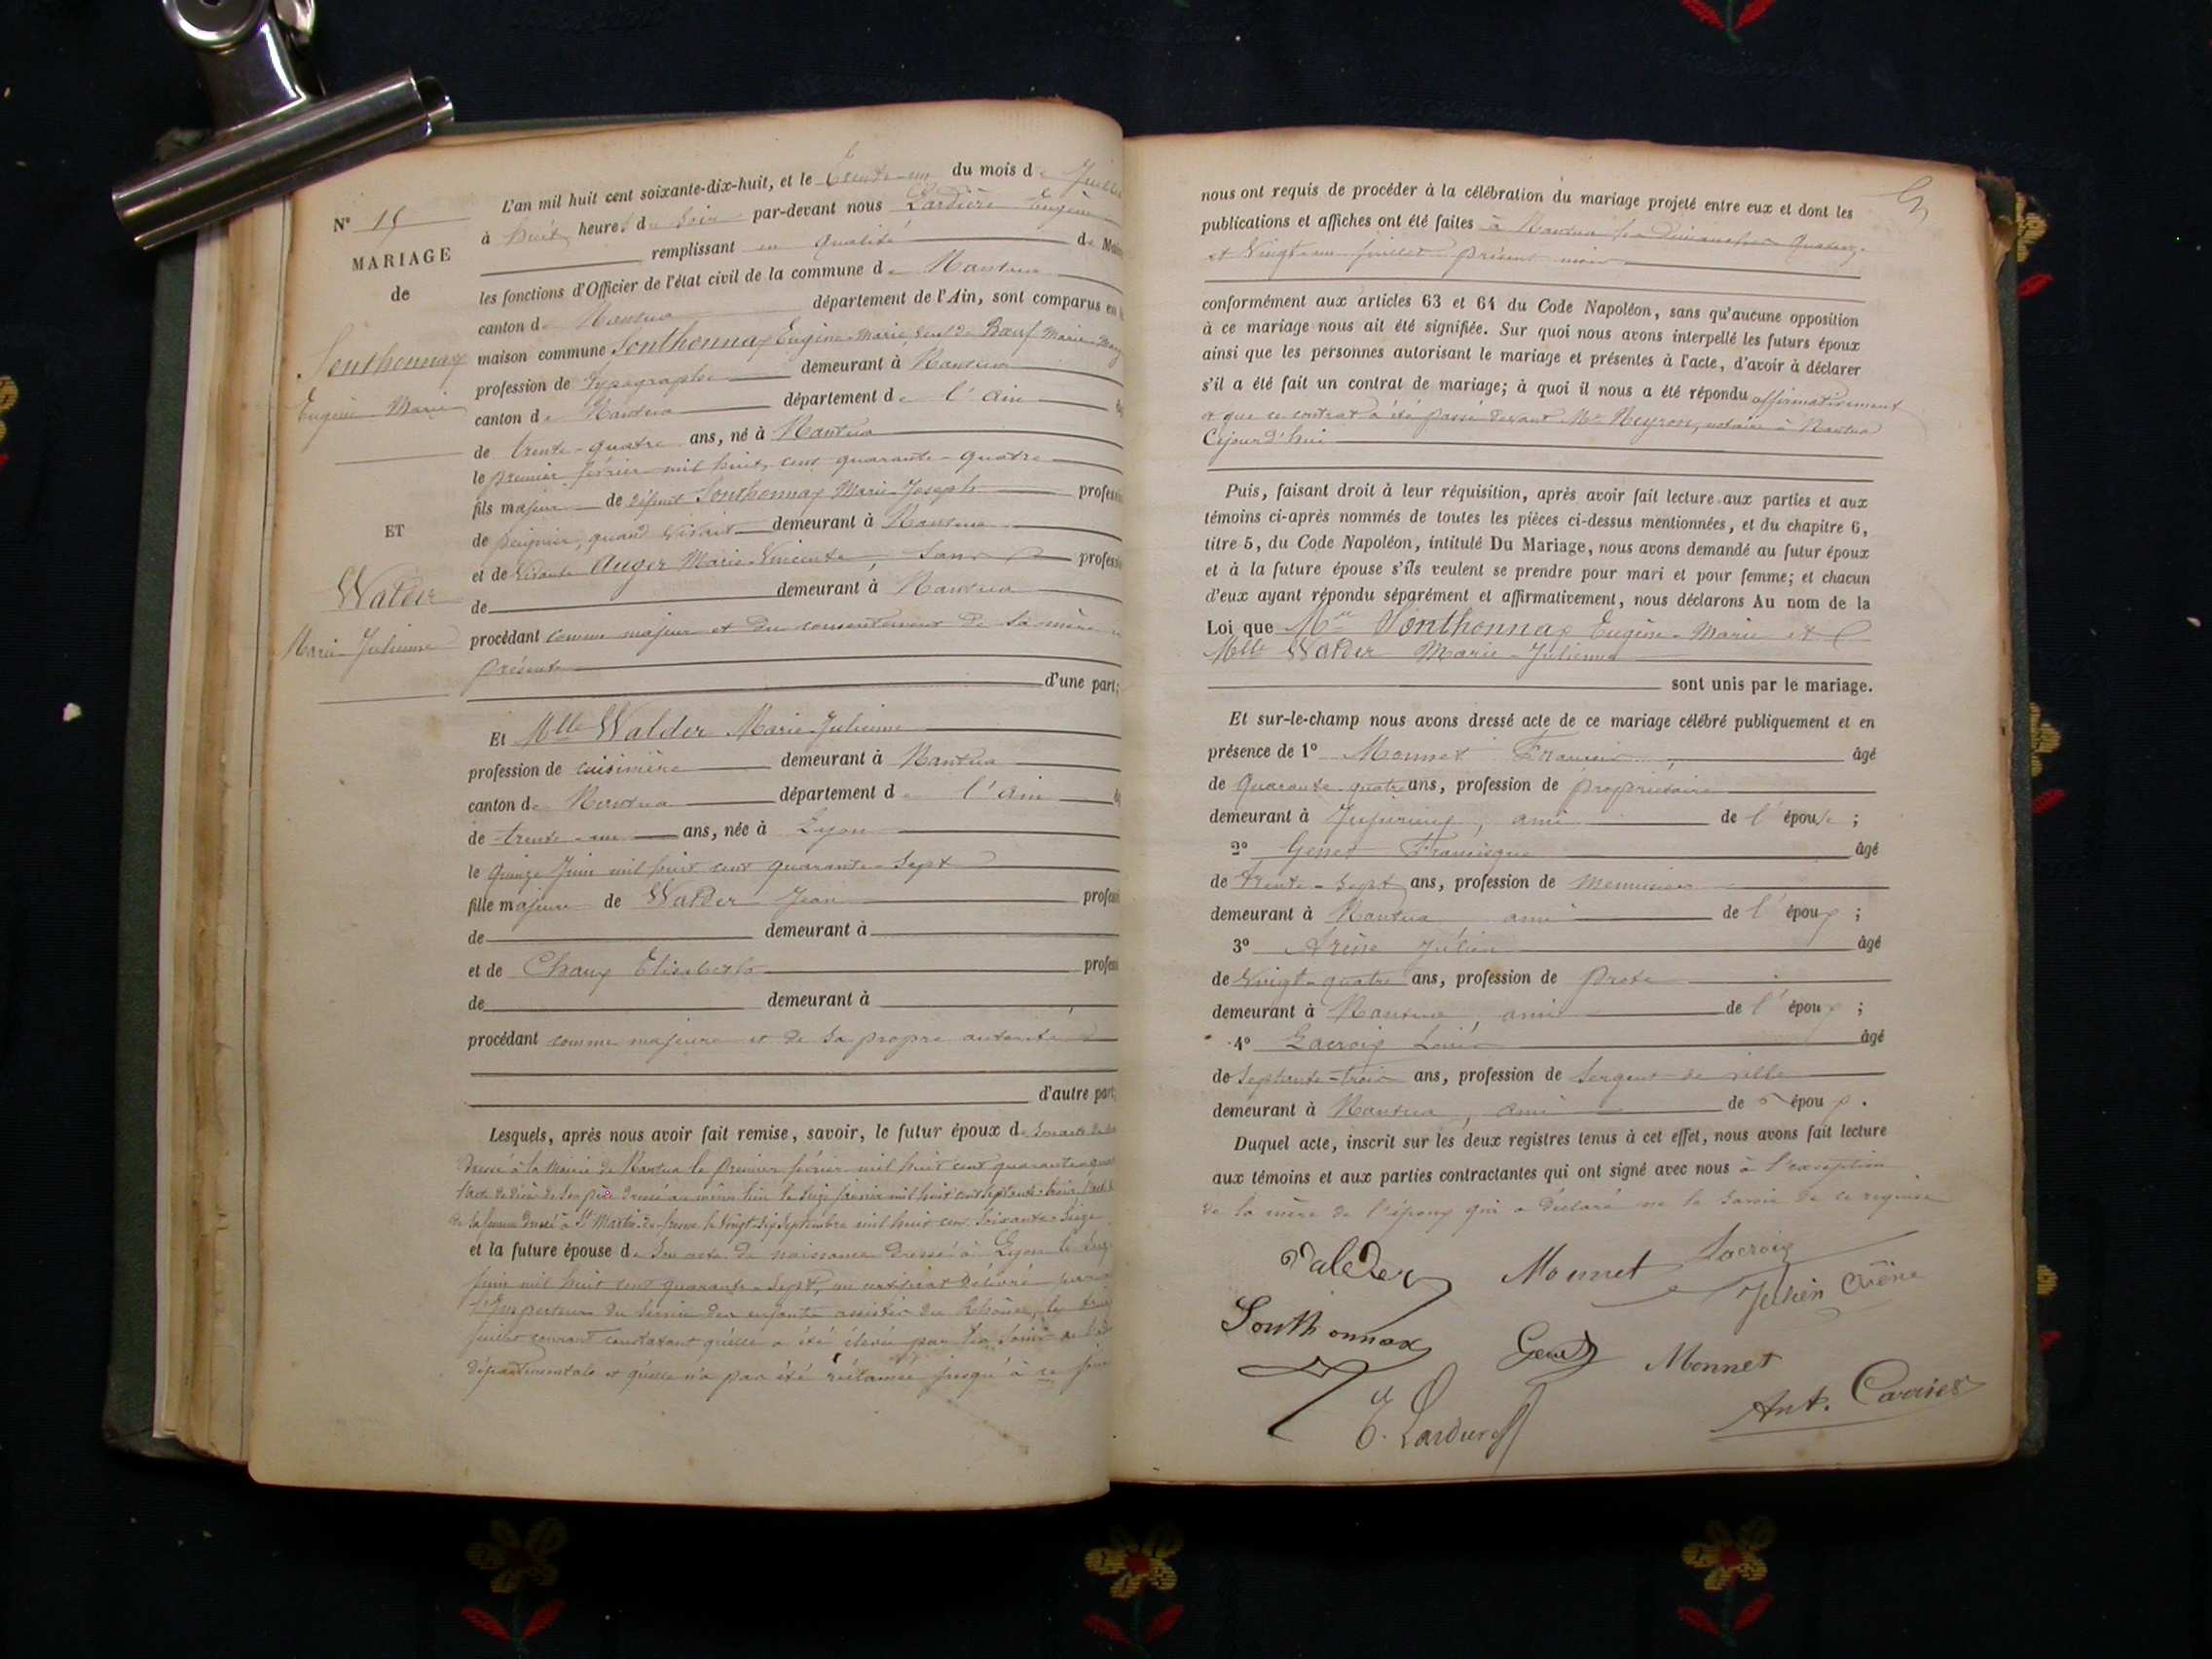 N° 15
MARIAGE
de
Sonthonnax
Eugène Marie
ET
Walder
Marie Julienne
L'an mil huit cent soixante-dix-huit, et le trente-un du mois de Juillet
à huit heures du soir par-devant nous Lardière Eugène
remplissant en qualité de Maire
les fonctions d'Officier de l'état civil de la commune de Nantua
canton de Nantua département de l'Ain, sont comparus en la
maison commune Sonthonnax Eugène-Marie, veuf de Bœuf Marie
profession de typographe demeurant à Nantua
canton de Nantua département de l'Ain âgé
de trente-quatre ans, né à Nantua
le premier février mil huit cent quarante-quatre
fils majeur de défunt Sonthonnax Marie-Joseph profession
de peignier, quand vivait demeurant à Nantua
et de vivante Auger Marie-Vincente, sans profession
de demeurant à Nantua
procédant comme majeur et du consentement de sa mère
présente
d'une part;
Et Mlle Walder Marie-Julienne
profession de cuisinière demeurant à Nantua
canton de Nantua département de l'Ain âgé
de trente-un ans, née à Lyon
le quinze Juin mil huit cent quarante-sept
fille majeure de Walder Jean profession
de demeurant à
et de Chaux Elisabeth profession
de demeurant à
procédant comme majeure et de sa propre autorité
d'autre part;
Lesquels, après nous avoir fait remise, savoir, le futur époux de son acte de
dressé à la Mairie de Nantua le premier février mil huit cent quarante-quatre
l'acte de décès de son père dressé au même lieu le seize janvier mil huit cent septante-trois,
de sa femme dressé à St Martin-du-fresne le vingt-six septembre mil huit cent soixante-seize
et la future épouse de son acte de naissance dressé à Lyon le
juin mil huit cent quarante-sept, un certificat délivré par
l'Inspecteur du service des enfants assistés du Rhône, le
juillet courant constatant qu'elle a été élevée par les soins de
départementale et qu'elle n'a pas été réclamée jusqu'à ce jour
nous ont requis de procéder à la célébration du mariage projeté entre eux et dont les
publications et affiches ont été faites à Nantua les dimanches quatorze
et vingt-un juillet présent mois
conformément aux articles 63 et 64 du Code Napoléon, sans qu'aucune opposition
à ce mariage nous ait été signifiée. Sur quoi nous avons interpellé les futurs époux
ainsi que les personnes autorisant le mariage et présentes à l'acte, d'avoir à déclarer
s'il a été fait un contrat de mariage; à quoi il nous a été répondu affirmativement
et que ce contrat a été passé devant Me Neyron, notaire à Nantua
Cejourd'hui
Puis, faisant droit à leur réquisition, après avoir fait lecture aux parties et aux
témoins ci-après nommés de toutes les pièces ci-dessus mentionnées, et du chapitre 6,
titre 5, du Code Napoléon, intitulé Du Mariage, nous avons demandé au futur époux
et à la future épouse s'ils veulent se prendre pour mari et pour femme; et chacun
d'eux ayant répondu séparément et affirmativement, nous déclarons Au nom de la
Loi que Mr Sonthonnax Eugène-Marie et
Mlle Walder Marie-Julienne
sont unis par le mariage.
Et sur-le-champ nous avons dressé acte de ce mariage célébré publiquement et en
présence de 1° Monnet François âgé
de quarante-quatre ans, profession de propriétaire
demeurant à Jujurieux, ami de l'épouse;
2° Genet Francisque âgé
de trente-sept ans, profession de menuisier
demeurant à Nantua, ami de l'époux;
3° Arène Julien âgé
de vingt-quatre ans, profession de prote
demeurant à Nantua, ami de l'époux;
4° Lacroix Louis âgé
de septante-trois ans, profession de sergent de ville
demeurant à Nantua, ami de l'époux.
Duquel acte, inscrit sur les deux registres tenus à cet effet, nous avons fait lecture
aux témoins et aux parties contractantes qui ont signé avec nous à l'exception
de la mère de l'époux qui a déclaré ne le savoir de ce requise
Valder Monnet Lacroix
Julien Arène
Sonthonnax Genet Monnet
E. Lardière Ant. Carrier